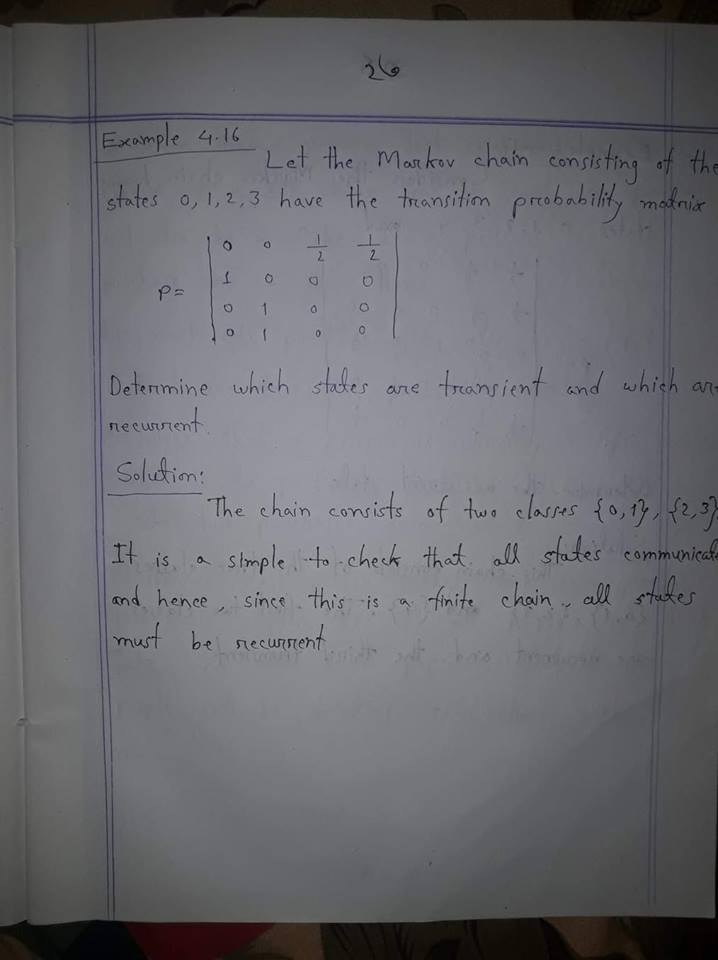 26
Example 4.16
Let the Markov chain consisting of the
states 0, 1, 2, 3 have the transition probability matrix
P= | 0 0 1/2 1/2 |
| 1 0 0 0 |
| 0 1 0 0 |
| 0 1 0 0 |
Determine which states are transient and which ar
recurrent.
Solution:
The chain consists of two classes {0,1}, {2,3}
It is a simple to check that all states communicat
and hence, since this is a finite chain, all states
must be recurrent